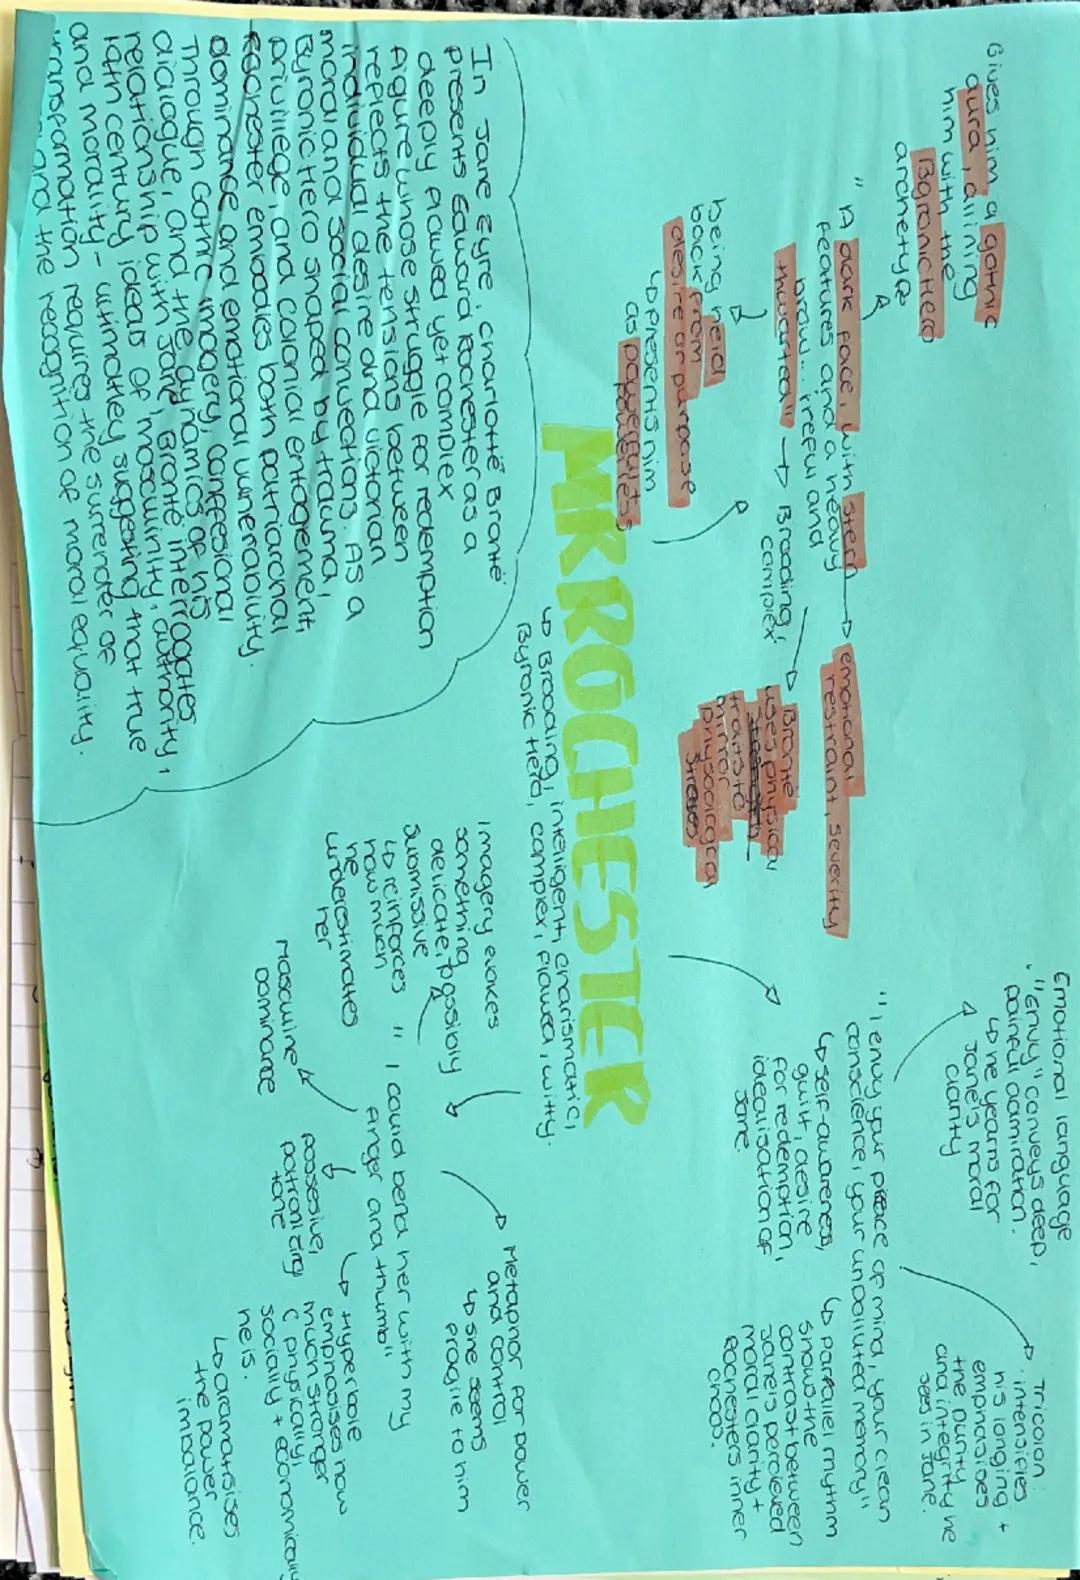 Gives him a gothic
aura, alining
him with the
Byronic Hero
archetype
"A dark face, with stern
features and a heavy
brow... ireful and
thwarted"
→ emotional
restraint, severity
→ Brooding,
complex
→ Brontë
uses physical
traits to
mirror
physological
stresses
being held
back from
desire or purpose
↳ presents him
as powerless
MR ROCHESTER
↳ Brooding, intelligent, charismatic,
Byronic Hero, complex, flawed, witty.
Emotional language
"Envy" conveys deep,
painful admiration.
↳ he yearns for
Jane's moral
clarity
Tricolon:
intensifies
his longing +
emphasises
the purity
and integrity he
sees in Jane.
"I envy your peace of mind, your clean
conscience, your unpolluted memory"
↳ self-awareness,
guilt, desire
for redemption,
idealisation of
Jane.
↳ parallel rhythm
shows the
contrast between
Jane's perceived
moral clarity +
Rochesters inner
chaos.
In Jane Eyre, Charlotte Brontë
presents Edward Rochester as a
deeply flawed yet complex
figure whose struggle for redemption
reflects the tensions between
individual desire and victorian
moral and social convections. As a
Byronic Hero shaped by trauma,
privillege, and colonial entagement,
Rochester embodies both patriarchal
dominance and emotional vunerability.
Through Gothic imagery, confesional
dialogue, and the dynamics of his
relationship with Jane, Brontë interrogates
19th century ideals of masculinity, authority,
and morality - ultimatley suggesting that true
transformation requires the surrender of
and the recognition of moral equality.
imagery evokes
something
delicate, possibly
submissive
↳ reinforces
how much
he
underestimates
her
Metaphor for power
and control
↳ she seems
fragile to him
"I could bend her with my
finger and thumb"
Masculine
Dominance
possesive,
patronizing
tone
↳ Hyperbole
emphasises how
much stronger
( physically,
socially + economically
he is.
↳ dramatisises
the power
imbalance.